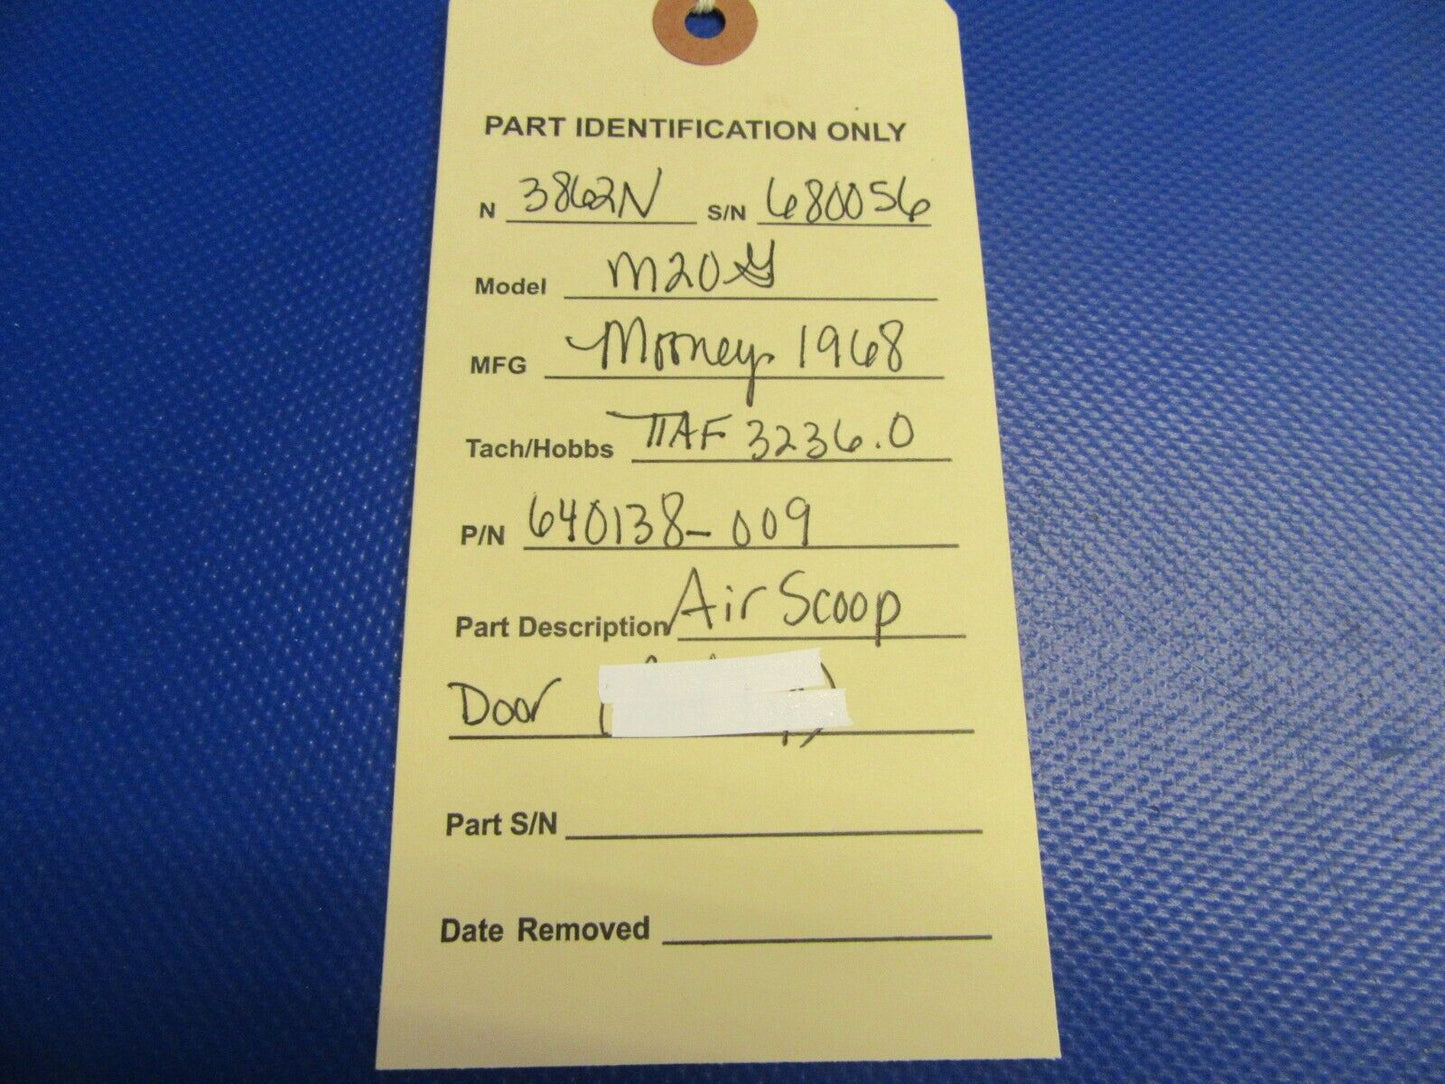 PART IDENTIFICATION ONLY
N 3862N S/N 680056
Model M20G
MFG Mooney 1968
Tach/Hobbs TTAF 3236.0
P/N 640138-009
Part Description Air Scoop
Door
Part S/N
Date Removed